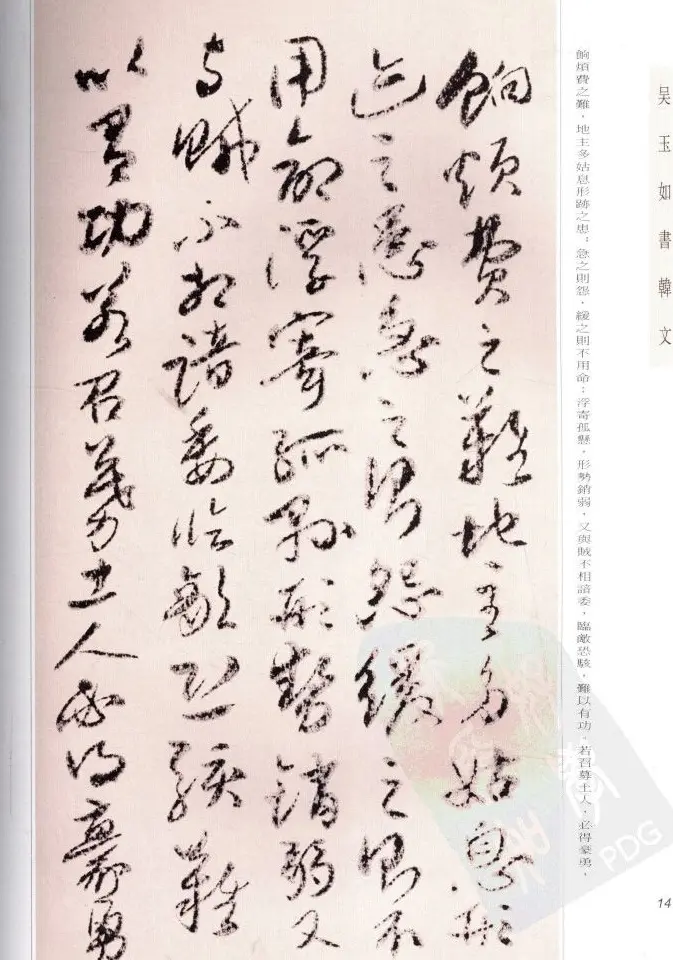 吴玉如書韓文
餉煩費之難，地主多姑息形跡之患；急之則怨，緩之則不用命；浮寄孤懸，形勢銷弱，又與賊不相諳委，臨敵恐駭，難以有功。若召募土人，必得豪勇，
餉煩費之難地主多姑息形
迹之患急之則怨緩之則不
用命浮寄孤懸形勢銷弱又
与賊不相諳委臨敵恐駭難
以有功若召募土人必得豪勇
14
PDG